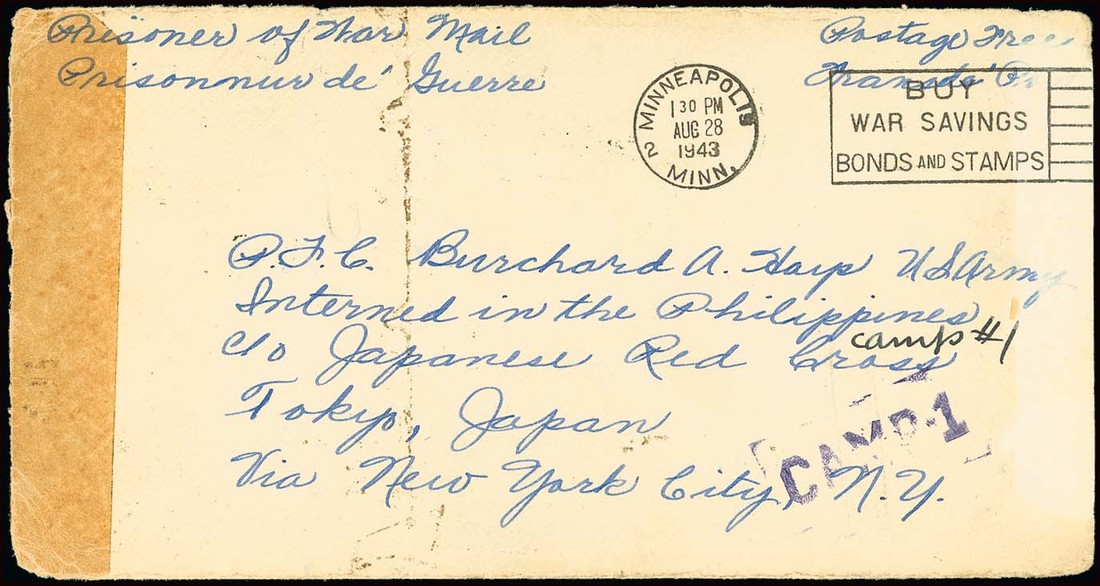 Prisoner of War Mail
Postage Free
Prisonnur de' Guerre
MINNEAPOLIS
2
1 30 PM
AUG 28
1943
MINN.
BUY
WAR SAVINGS
BONDS AND STAMPS
P.F.C. Burchard A. Harp US Army
Interned in the Philippines
camp #1
c/o Japanese Red Cross
Tokyo, Japan
CAMP-1
Via New York City, N.Y.